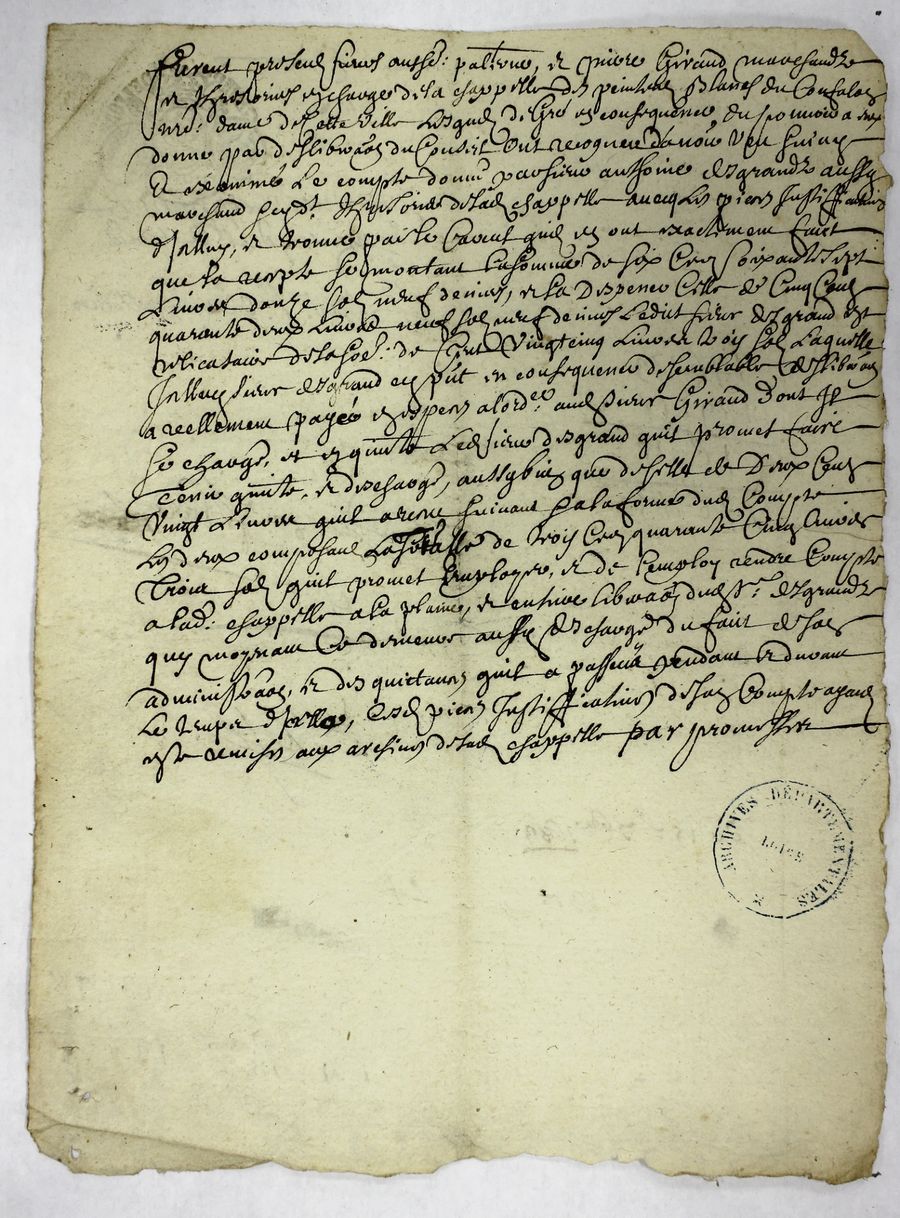 furent presens sieurs anthe: palerne, et pierre Giraud marchandz
et Thresoriers en charge de la chappelle des penitens Blancs du Confalon
nre: dame de cette ville Lesquels de gré en consequence du pouvoir a eux
donné par deslibera[ti]on du Conseil Ont recogneu d'avoir Veu Suivy
Et examiné Le compte donné par sieur anthoine desgrandz aussy
marchand Thresorier de lad chappelle avecq Les pieces Justifficatives
d'Icelluy, et trouvé par le Calcul quils en ont exactement faict
que La recepte Se montant La somme de six Cens soixante sept
Livres douze solz neuf deniers, et La Despence Celle de Cinq Cens
quarante deux Livres neuf solz neuf deniers Ledict sieur desgrand est
relicataire de La so[mm]e: de Cent Vingt cinq Livres trois solz Laquelle
Icelluy sieur desgrand en consequence de semblable deslibera[ti]on
a reellement payée en especes aud sieur Giraud dont Il
Se charge, et en quitte Led sieur desgrand qu'il promet faire
tenir quitte, et deschargé, aussy bien que de celle de Deux Cens
Vingt Livres qu'il a receu suivant la forme dud Compte
Les deux composant La Totalle de trois Cens quarante Cinq Livres
Trois solz qu'il promet Employer, et de L'employ rendre Compte
a lad: chappelle a La plaine, et entiere libera[ti]on dud Sr: desgrandz
quy moyenant Ce demeure aussy deschargé du faict de sad
administra[ti]on, et des quictances qu'il a passées pendant et durant
Le temps d'Icelle, Lesd pieces Justifficatives de sad Compte ayant
esté remises aux archives de lad chappelle par promesses
ARCHIVES DÉPARTEMENTALES
LOIRE